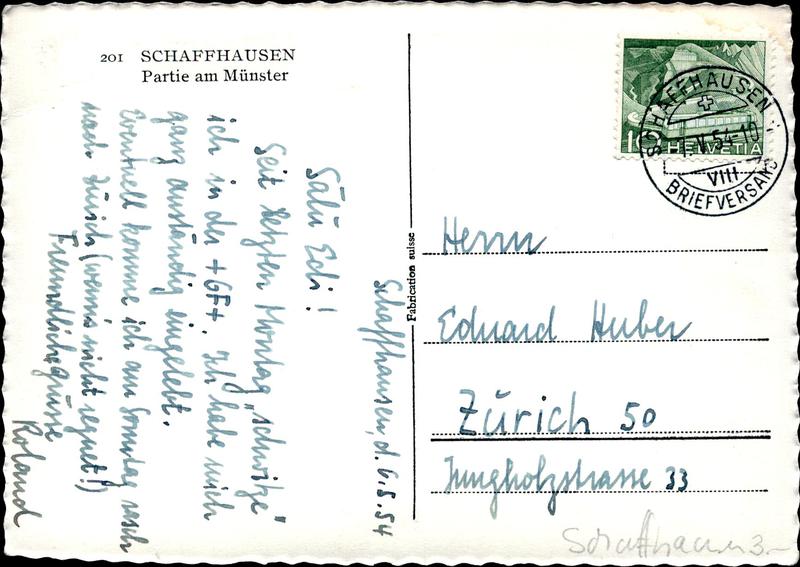 201 SCHAFFHAUSEN
Partie am Münster
Schaffhausen, d. 6.5.54
Salü Edi!
Seit letzten Montag "schwitze"
ich in der +GF+. Ich habe mich
ganz anständig eingelebt.
Eventuell komme ich am Sonntag rasch
nach Zürich (wenn's nicht regnet!)
Freundliche Grüsse
Roland
Fabrication suisse
10 HELVETIA
SCHAFFHAUSEN
V.54-10
VIII
BRIEFVERSAND
Herrn
Eduard Huber
Zürich 50
Jungholzstrasse 33
Schaffhausen 3.-